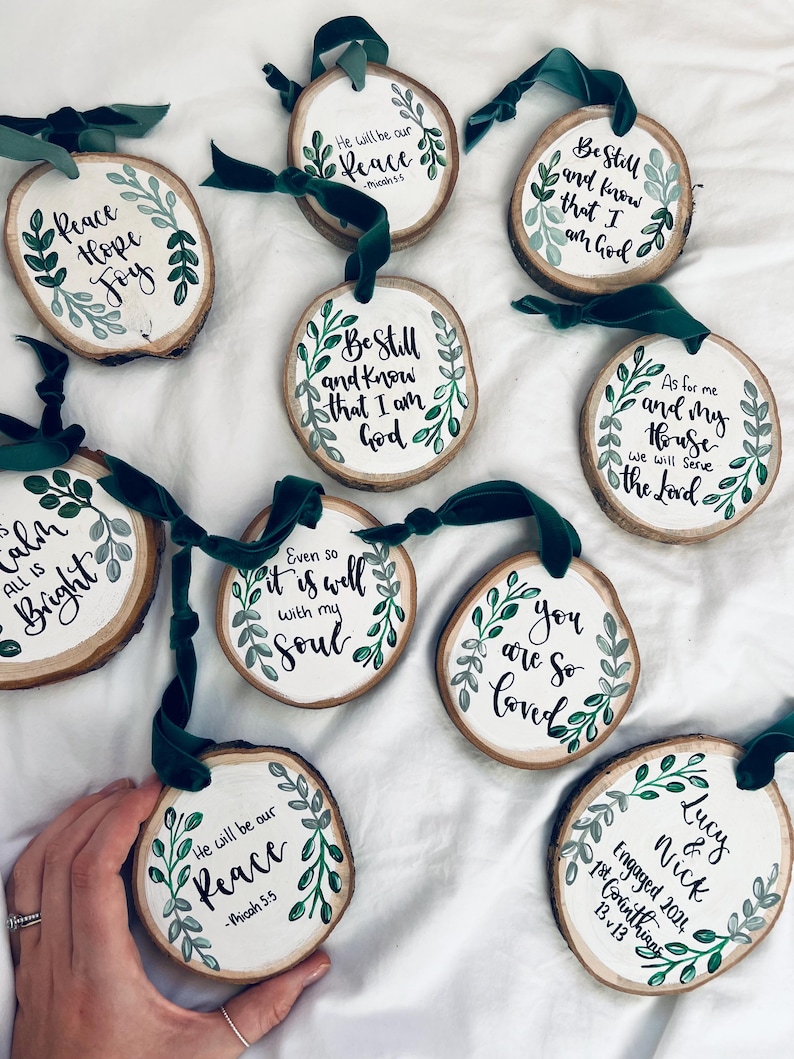 He will be our
Peace
-Micah 5:5
Be Still
and know
that I
am God
Peace
Hope
Joy
Be Still
and Know
that I am
God
As for me
and my
House
we will serve
the Lord
Calm
ALL IS
Bright
Even so
it is well
with my
soul
You
are so
loved
He will be our
Peace
-Micah 5:5
Lucy
&
Nick
Engaged 2024
1st Corinthians
13 v 13